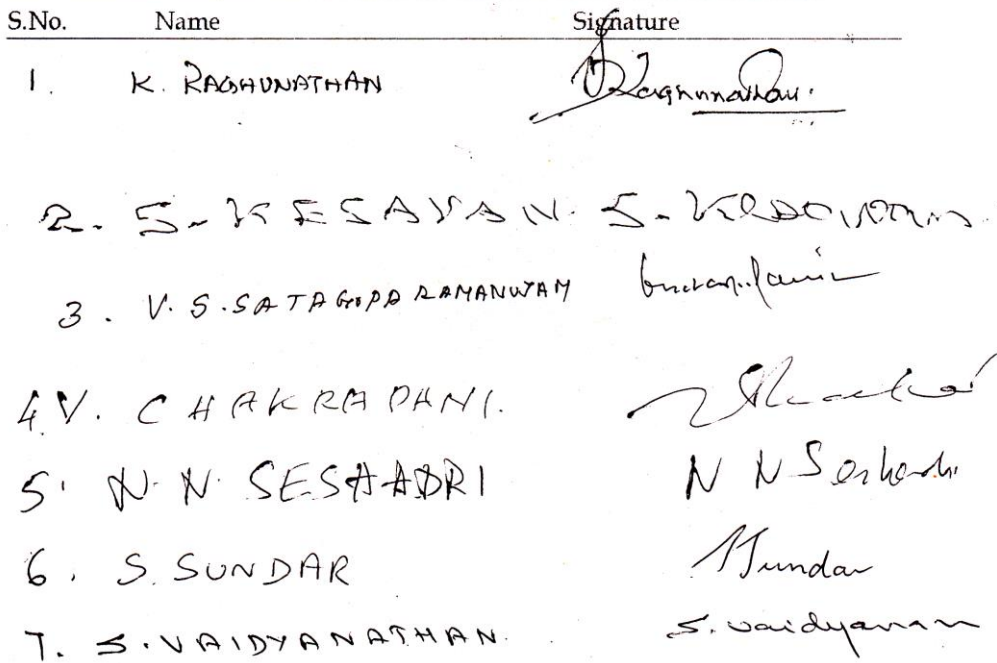 S.No. Name Signature
1. K. RAGHUNATHAN Raghunathan.
2. S. KESAVAN. S. Kesavan
3. V. S. SATAGOPA RAMANUJAM
4. V. CHAKRAPANI.
5. N. N. SESHADRI N N Seshadri
6. S. SUNDAR SSundar
7. S. VAIDYANATHAN. S. Vaidyanan